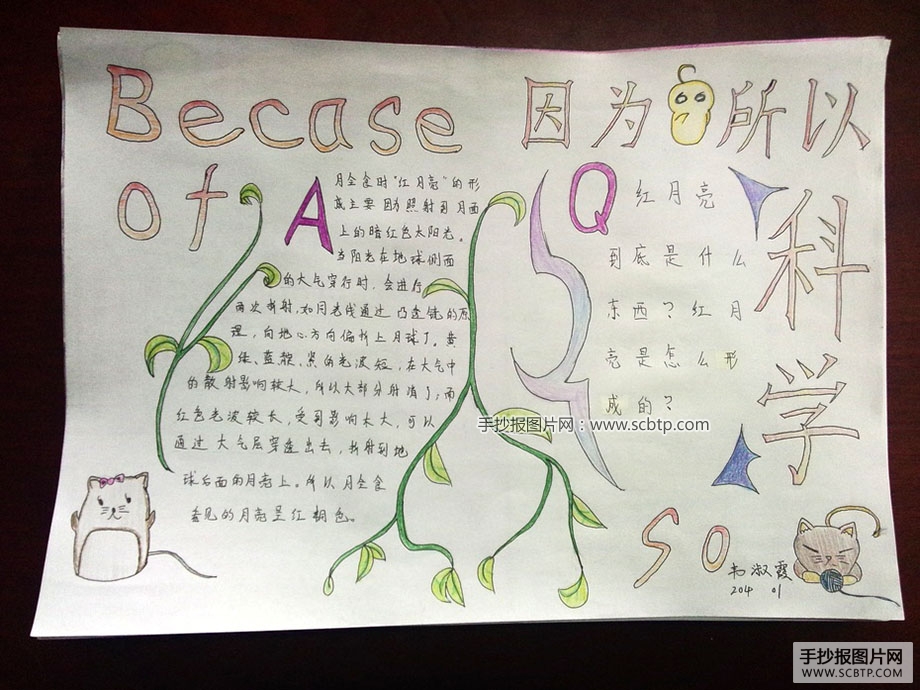 Becase
因为 所以
of
科学
A
月全食时“红月亮”的形
成主要因为照射到月面
上的暗红色太阳光。
当阳光在地球侧面
的大气穿行时，会进行
两次折射，如同光线通过凸透镜的原
理，向地心方向偏折上月球了。黄
绿、蓝靛、紫的光波短，在大气中
的散射影响较大，所以大部分射消了；而
红色光波较长，受到影响太大，可以
通过大气层穿透出去，折射到地
球后面的月亮上。所以月全食
看见的月亮呈红铜色。
Q
红月亮
到底是什么
东西？红月
亮是怎么形
成的？
手抄报图片网：www.scbtp.com
so
韦淑霞
2014 01
手抄报图片网
WWW.SCBTP.COM